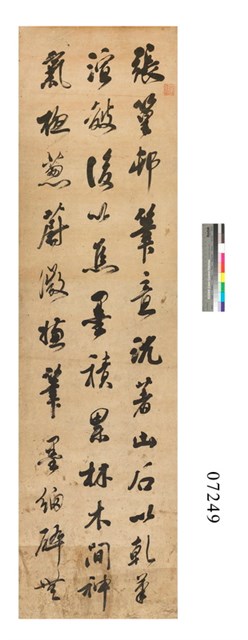 張篁邨筆意沈著山石以乾筆
渲皴後以焦墨積累林木間神
氣極蔥蔚微嫌筆墨細碎
07249